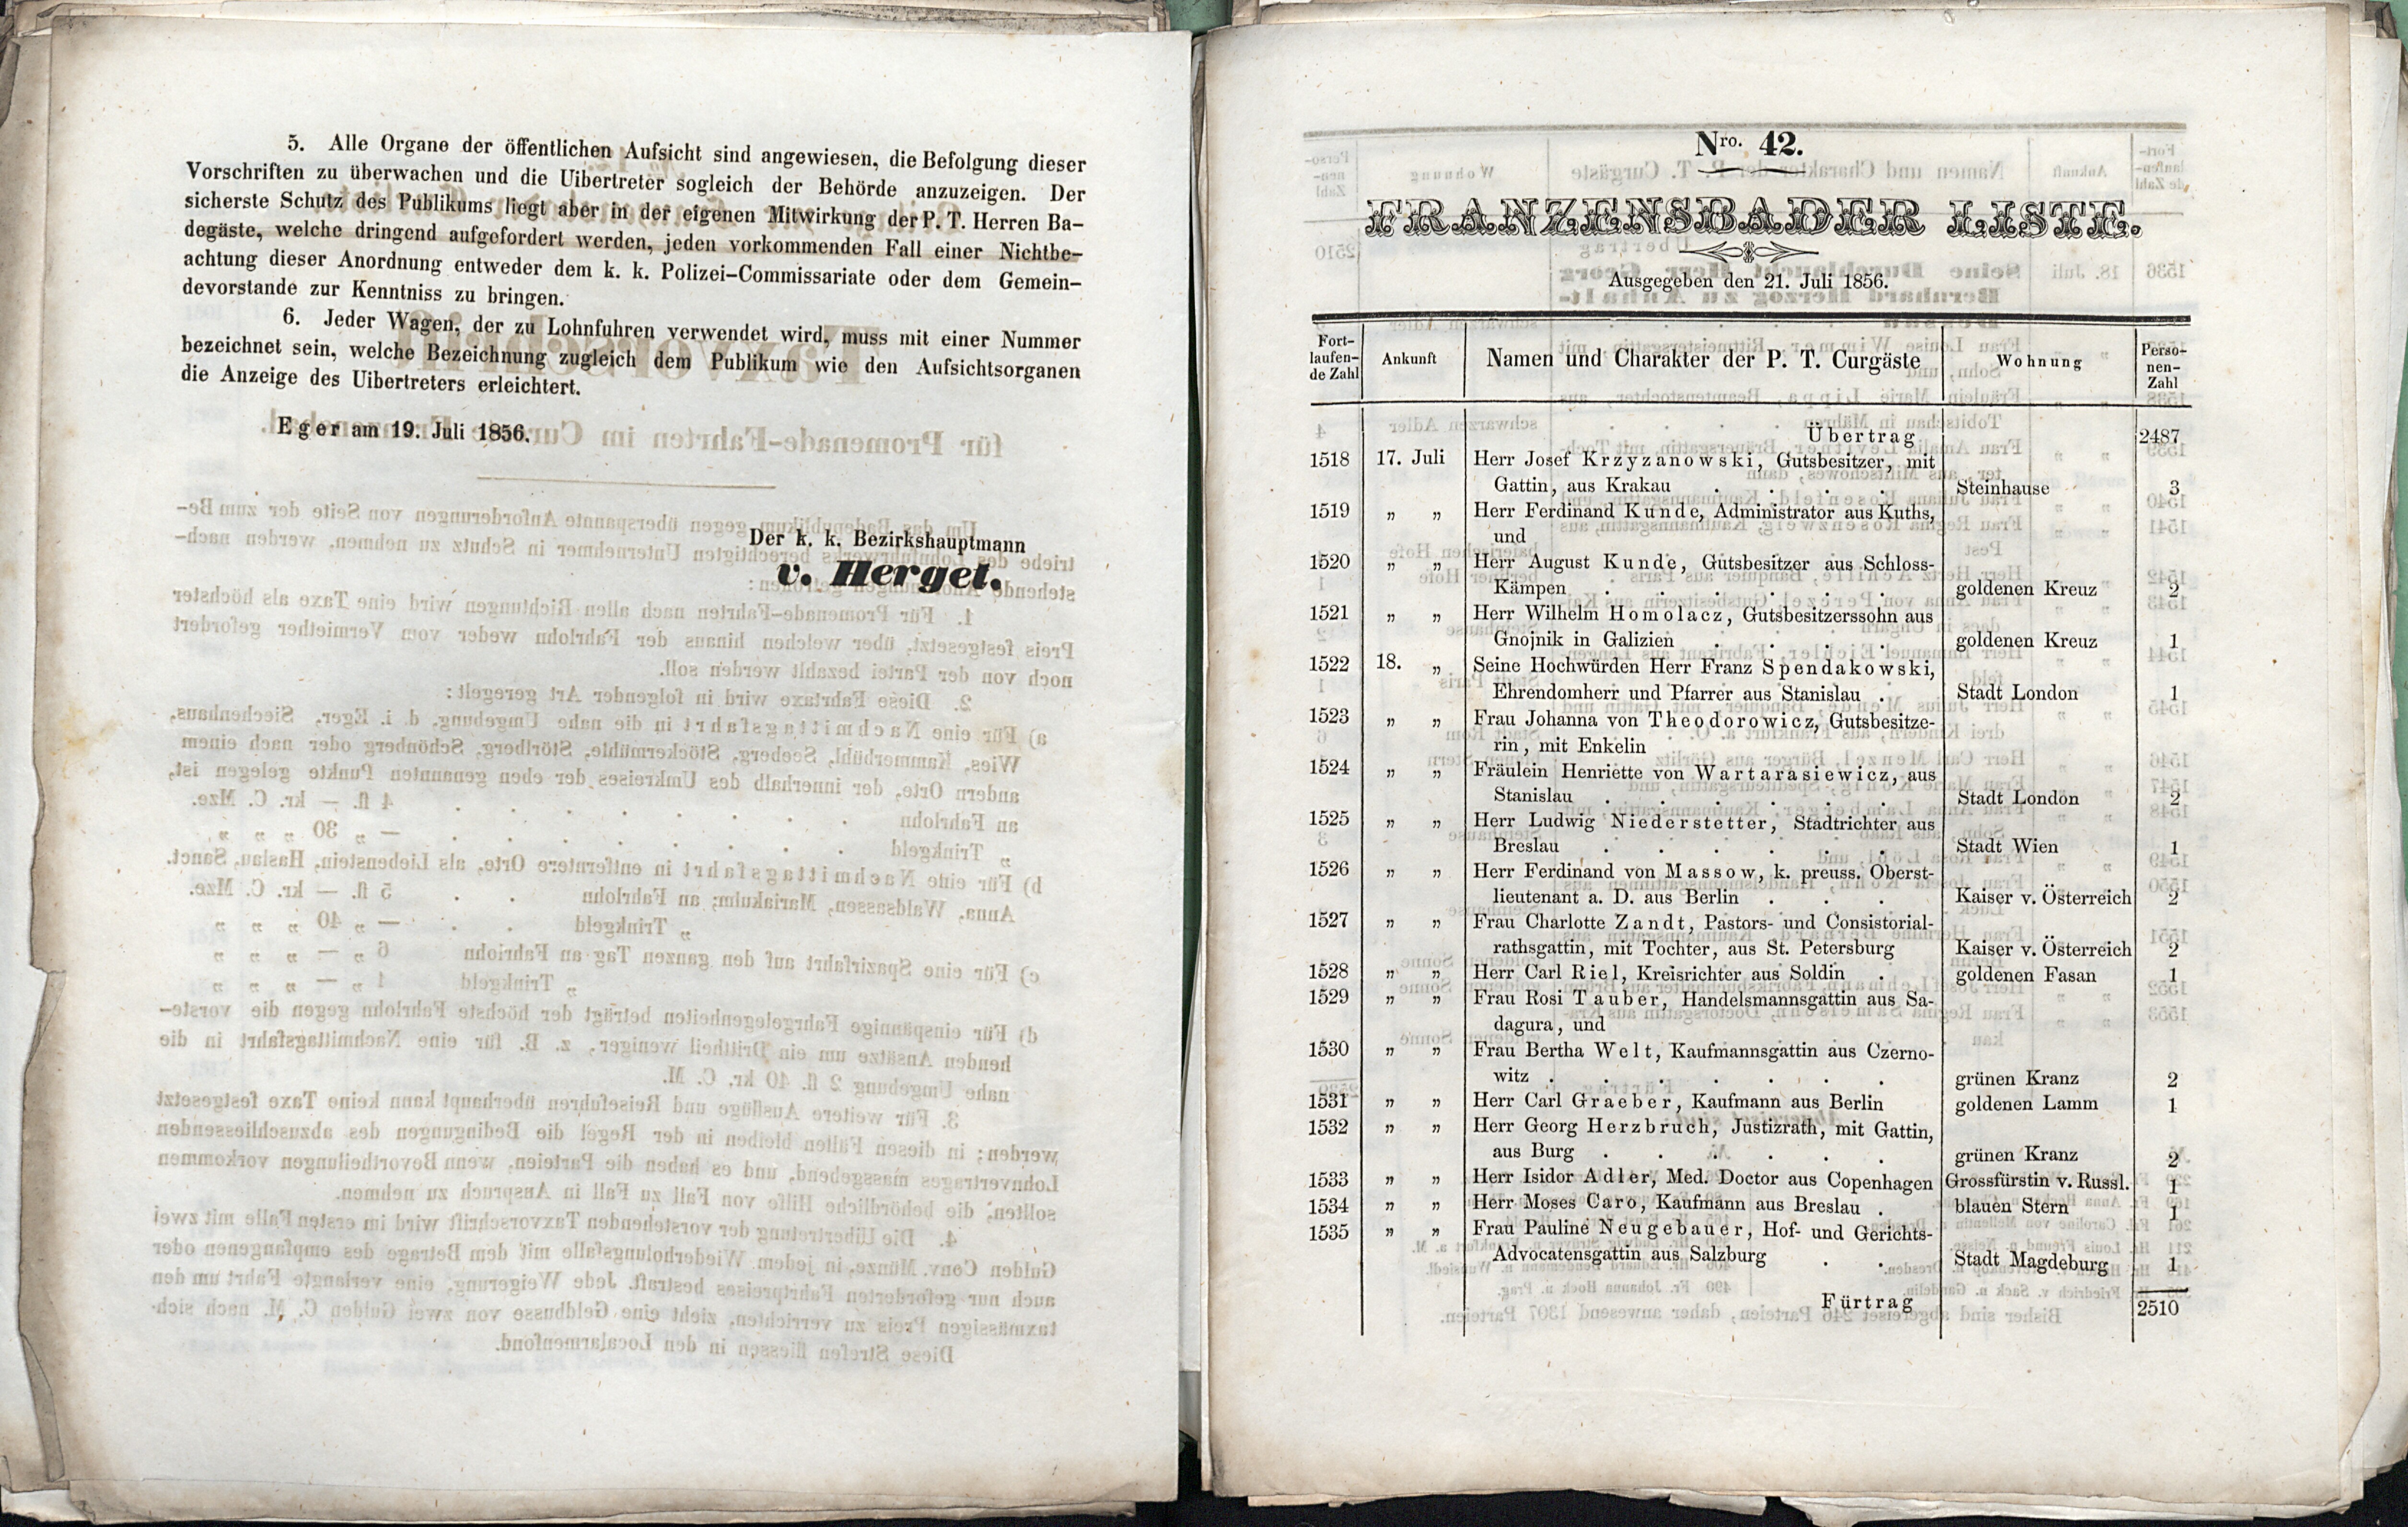 5. Alle Organe der öffentlichen Aufsicht sind angewiesen, die Befolgung dieser
Vorschriften zu überwachen und die Uibertreter sogleich der Behörde anzuzeigen. Der
sicherste Schutz des Publikums liegt aber in der eigenen Mitwirkung der P. T. Herren Ba-
degäste, welche dringend aufgefordert werden, jeden vorkommenden Fall einer Nichtbe-
achtung dieser Anordnung entweder dem k. k. Polizei-Commissariate oder dem Gemein-
devorstande zur Kenntniss zu bringen.
6. Jeder Wagen, der zu Lohnfuhren verwendet wird, muss mit einer Nummer
bezeichnet sein, welche Bezeichnung zugleich dem Publikum wie den Aufsichtsorganen
die Anzeige des Uibertreters erleichtert.
Eger am 19. Juli 1856.
Der k. k. Bezirkshauptmann
v. Herget.
Nro. 42.
FRANZENSBADER LISTE.
Ausgegeben den 21. Juli 1856.
Fort-laufen-de Zahl Ankunft Namen und Charakter der P. T. Curgäste Wohnung Perso-nen-Zahl
Übertrag 2487
1518 17. Juli Herr Josef Krzyzanowski, Gutsbesitzer, mit
Gattin, aus Krakau . . . . Steinhause 3
1519 „ „ Herr Ferdinand Kunde, Administrator aus Kuths,
und
1520 „ „ Herr August Kunde, Gutsbesitzer aus Schloss-
Kämpen . . . . . . goldenen Kreuz 2
1521 „ „ Herr Wilhelm Homolacz, Gutsbesitzerssohn aus
Gnojnik in Galizien . . . . goldenen Kreuz 1
1522 18. „ Seine Hochwürden Herr Franz Spendakowski,
Ehrendomherr und Pfarrer aus Stanislau . Stadt London 1
1523 „ „ Frau Johanna von Theodorowicz, Gutsbesitze-
rin, mit Enkelin
1524 „ „ Fräulein Henriette von Wartarasiewicz, aus
Stanislau . . . . . . Stadt London 2
1525 „ „ Herr Ludwig Niederstetter, Stadtrichter aus
Breslau . . . . . . Stadt Wien 1
1526 „ „ Herr Ferdinand von Massow, k. preuss. Oberst-
lieutenant a. D. aus Berlin . . . Kaiser v. Österreich 2
1527 „ „ Frau Charlotte Zandt, Pastors- und Consistorial-
rathsgattin, mit Tochter, aus St. Petersburg Kaiser v. Österreich 2
1528 „ „ Herr Carl Riel, Kreisrichter aus Soldin . goldenen Fasan 1
1529 „ „ Frau Rosi Tauber, Handelsmannsgattin aus Sa-
dagura, und
1530 „ „ Frau Bertha Welt, Kaufmannsgattin aus Czerno-
witz . . . . . . . grünen Kranz 2
1531 „ „ Herr Carl Graeber, Kaufmann aus Berlin goldenen Lamm 1
1532 „ „ Herr Georg Herzbruch, Justizrath, mit Gattin,
aus Burg . . . . . . grünen Kranz 2
1533 „ „ Herr Isidor Adler, Med. Doctor aus Copenhagen Grossfürstin v. Russl. 1
1534 „ „ Herr Moses Caro, Kaufmann aus Breslau . blauen Stern 1
1535 „ „ Frau Pauline Neugebauer, Hof- und Gerichts-
Advocatensgattin aus Salzburg . . Stadt Magdeburg 1
Fürtrag 2510